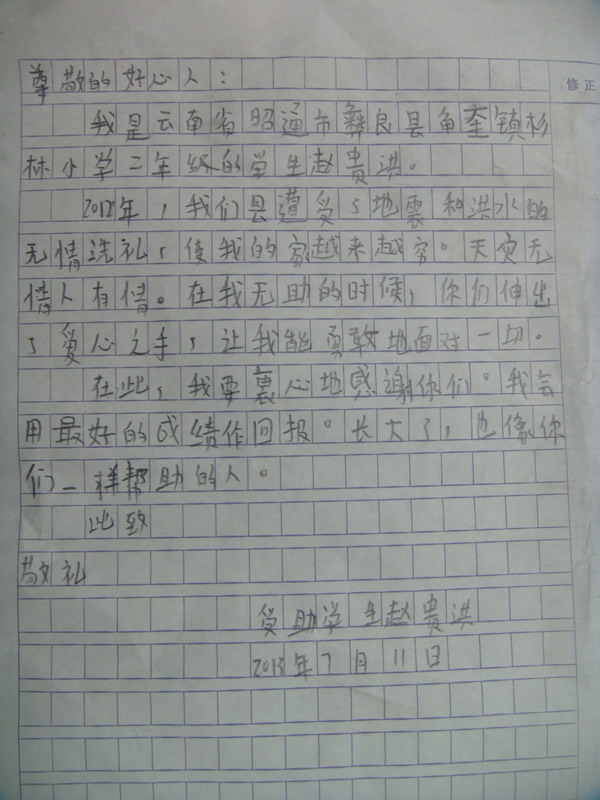 尊敬的好心人：
我是云南省昭通市彝良县角奎镇杉
林小学二年级的学生赵贵洪。
2012年，我们县遭受了地震和洪水的
无情洗礼，使我的家越来越穷。天灾无
情人有情。在我无助的时候，你们伸出
了爱心之手，让我能勇敢地面对一切。
在此，我要衷心地感谢你们。我会
用最好的成绩作回报。长大了，也像你
们一样帮助的人。
此致
敬礼
受助学生赵贵洪
2013年7月11日
修正